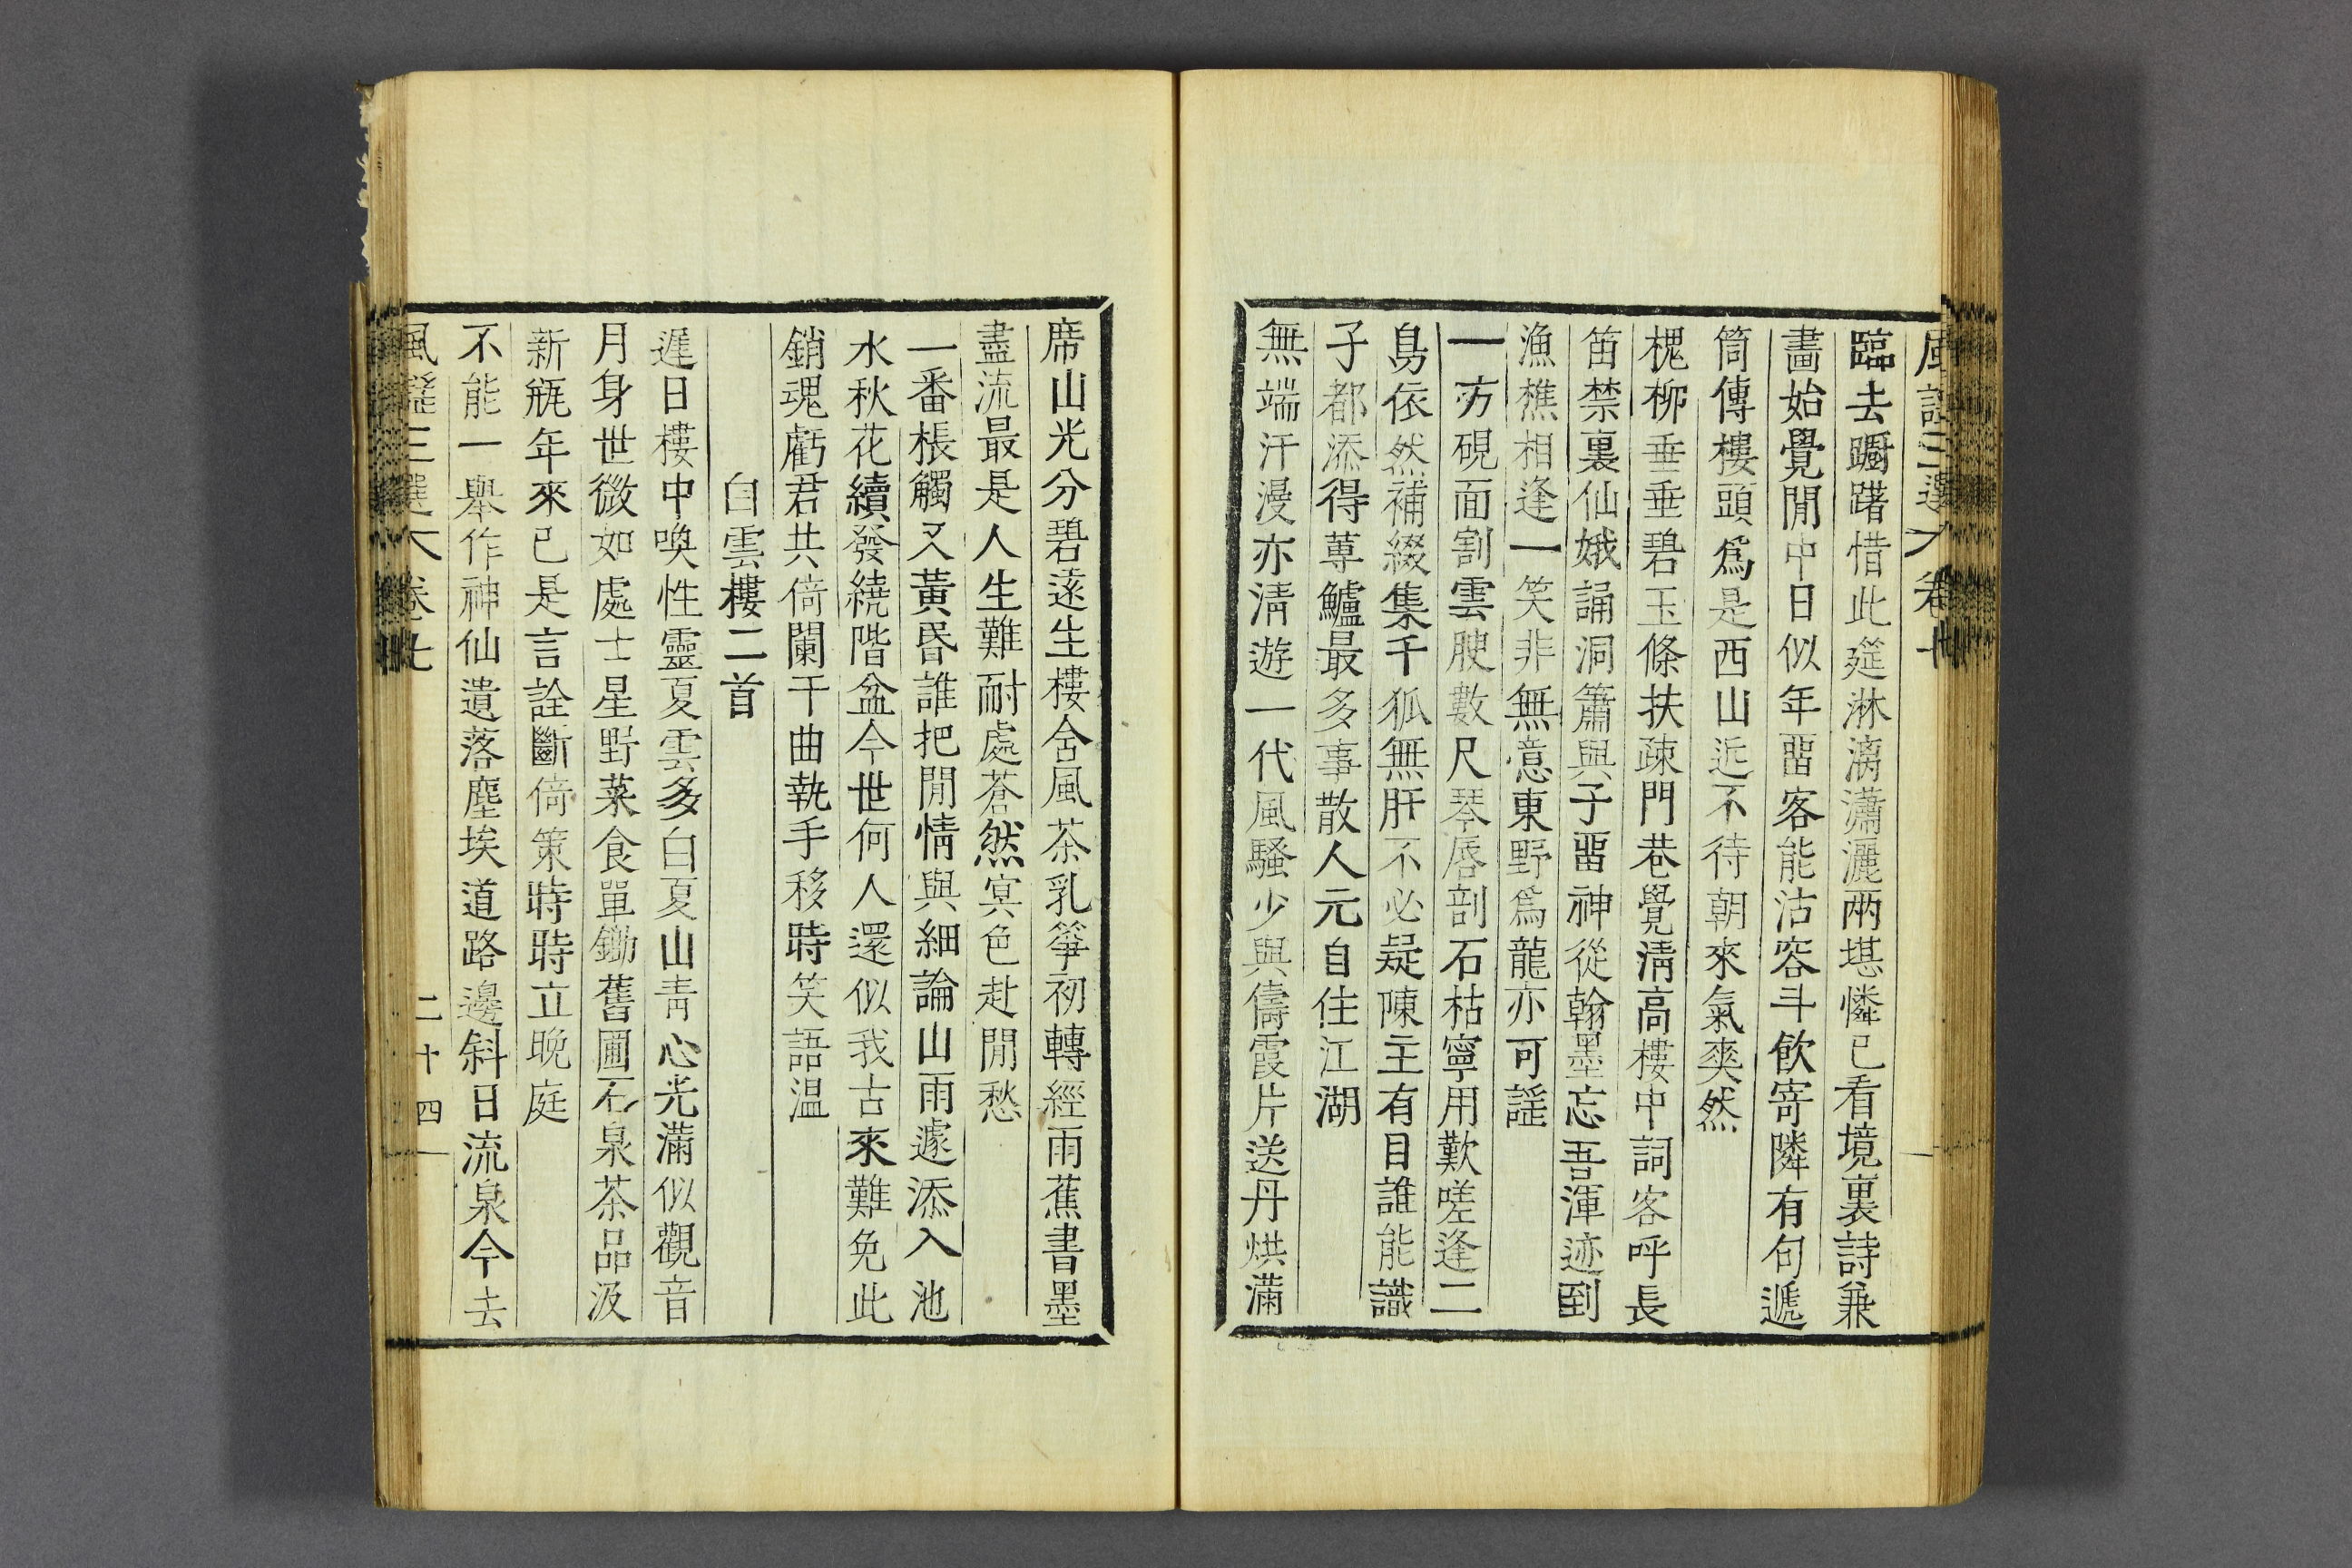 臨去躕躇惜此筵淋漓瀟灑兩堪憐已看境裏詩兼
畵始覺閒中日似年畱客能沽容斗飲寄隣有句遞
筒傳樓頭爲是西山近不待朝來氣爽然
槐柳垂垂碧玉條扶疎門巷覺淸高樓中詞客呼長
笛禁裏仙娥誦洞簫與子畱神從翰墨忘吾渾迹到
漁樵相逢一笑非無意東野爲龍亦可謠
一方硯面割雲腴數尺琴唇剖石枯寧用歎嗟逢二
鳥依然補綴集千狐無肝不必疑陳主有目誰能識
子都添得蓴鱸最多事散人元自住江湖
無端汗漫亦淸遊一代風騷少與儔霞片送丹烘滿
席山光分碧遠生樓含風茶乳箏初轉經雨蕉書墨
盡流最是人生難耐處蒼然冥色赴閒愁
一番棖觸又黃昏誰把閒情與細論山雨遽添入池
水秋花續發繞階盆今世何人還似我古來難免此
銷魂虧君共倚闌干曲執手移時笑語温
白雲樓二首
遲日樓中喚性靈夏雲多白夏山靑心光滿似觀音
月身世微如處士星野菜食單鋤舊圃石泉茶品汲
新瓶年來已是言詮斷倚策時時立晩庭
不能一舉作神仙遺落塵埃道路邊斜日流泉今去
風謠三選 卷七 二十四